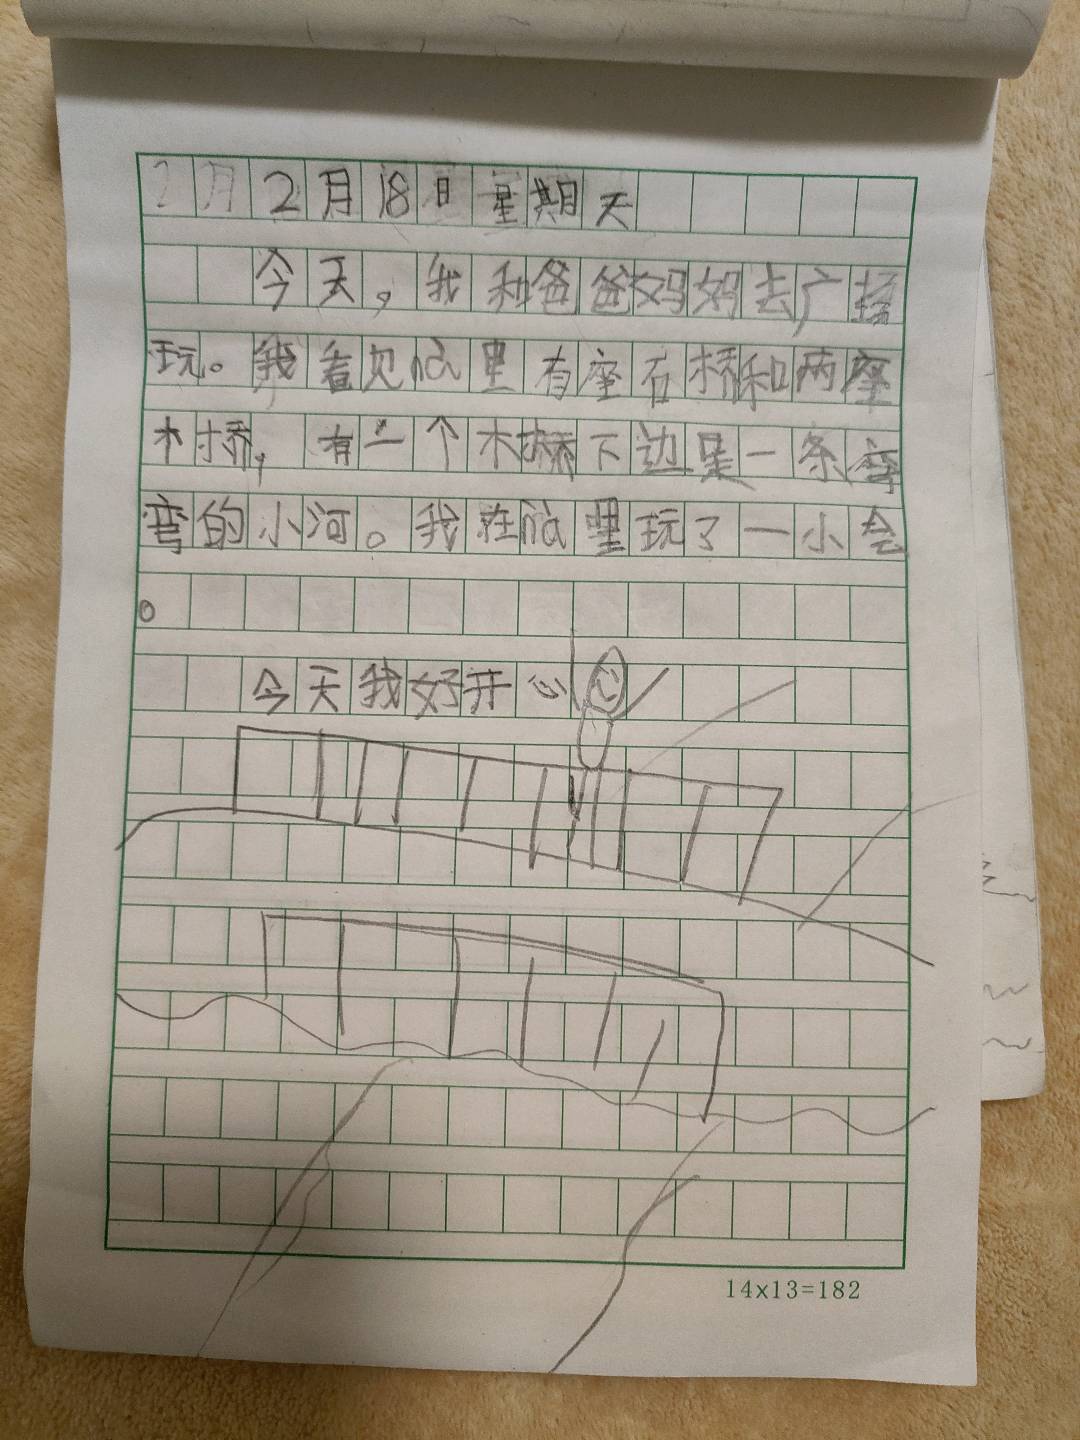 2月2月18日星期天
今天，我和爸爸妈妈去广场
玩。我看见nà里有座石桥和两座
木桥，有一个木桥下边是一条弯
弯的小河。我在nà里玩了一小会
。
今天我好开心
14x13=182